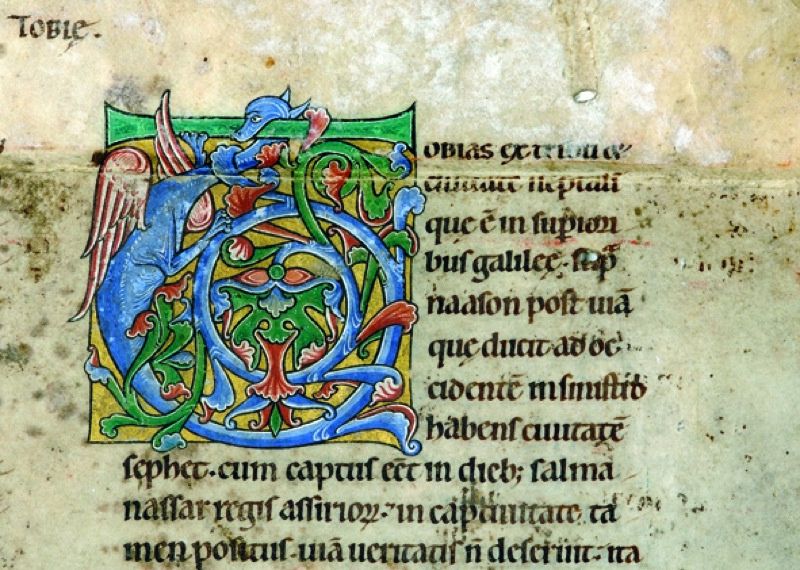 TOBIE.
TOBIAS ex tribu &
ciuitate neptali
que ē in supiori
bus galilee. sup̄
naason post uiā
que ducit ad oc
cidentē in sinistris
habens ciuitatē
sephet. cum captus eēt in dieb; salma
nassar regis assirioꝝ. in captiuitate ta
men positus. uiā ueritatis ñ deseruit. ita